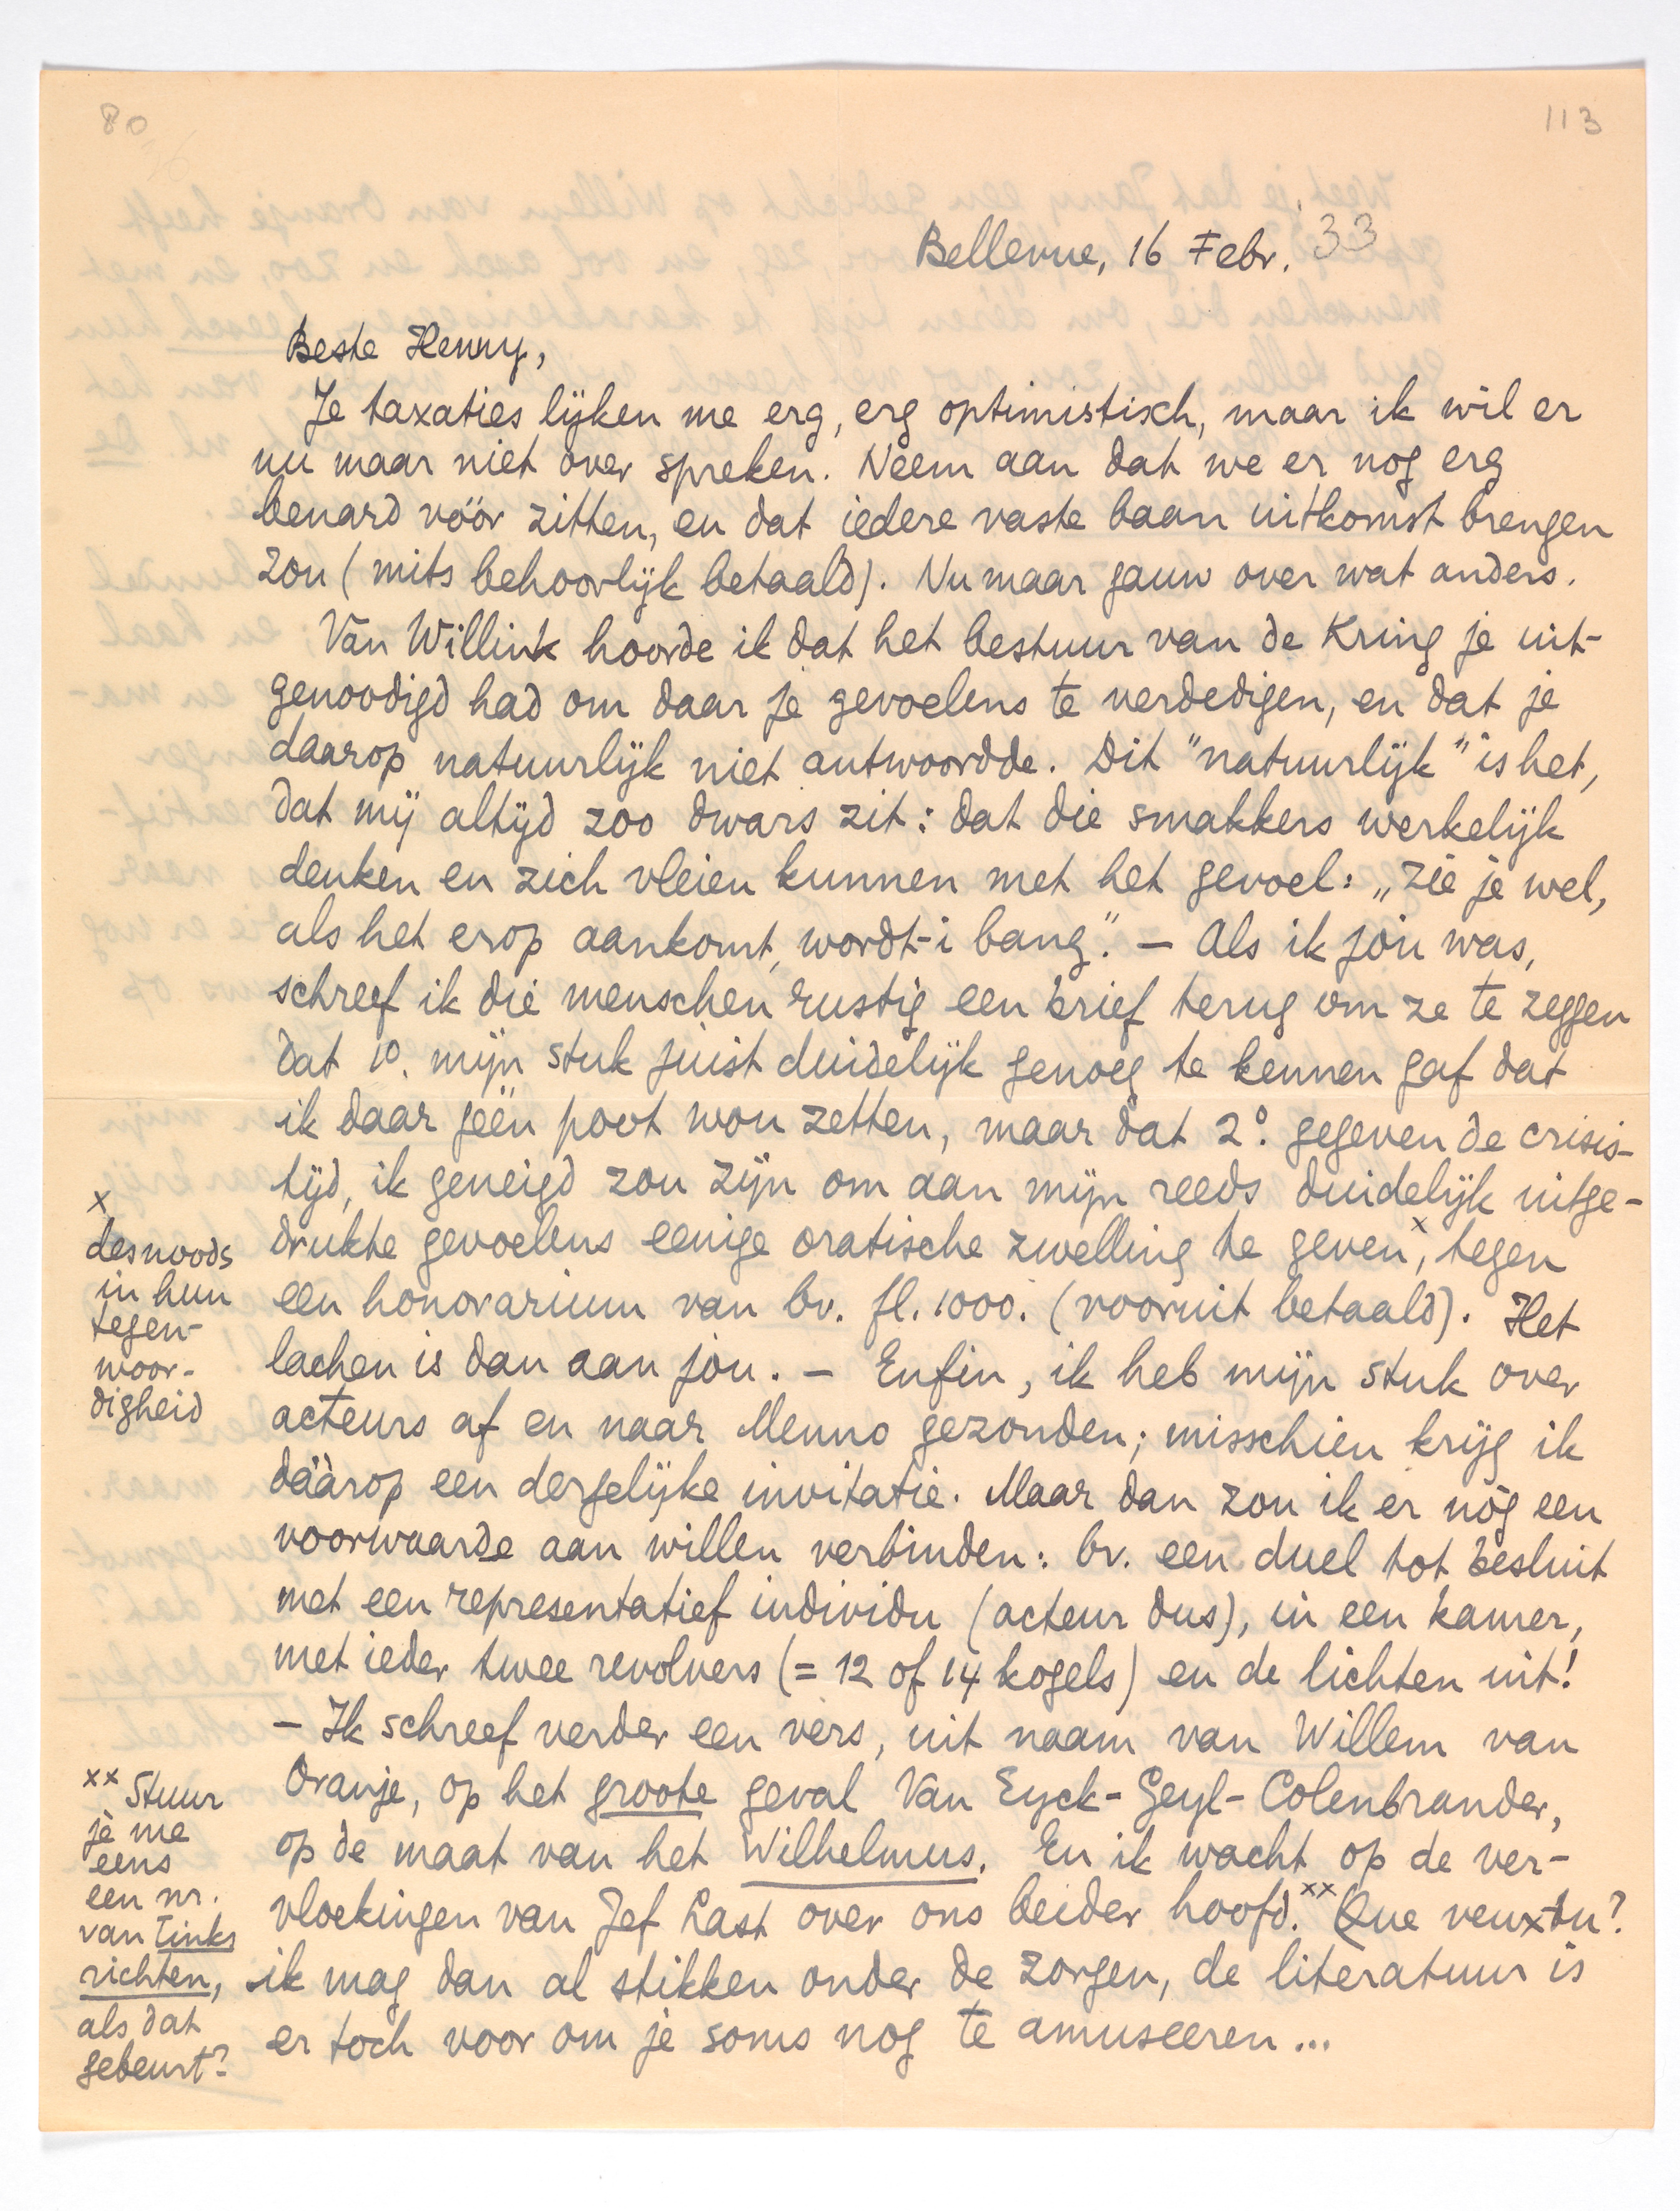 80
113
Bellevue, 16 Febr. 33
Beste Henny,
Je taxaties lijken me erg, erg optimistisch, maar ik wil er
nu maar niet over spreken. Neem aan dat we er nog erg
benard vóór zitten, en dat iedere vaste baan uitkomst brengen
zou (mits behoorlijk betaald). Nu maar gauw over wat anders.
Van Willink hoorde ik dat het bestuur van de Kring je uit-
genoodigd had om daar je gevoelens te verdedigen, en dat je
daarop natuurlijk niet antwoordde. Dit "natuurlijk" is het,
dat mij altijd zoo dwars zit: dat die smakkers werkelijk
denken en zich vleien kunnen met het gevoel: „zie je wel,
als het erop aankomt, wordt-i bang". – Als ik jòu was,
schreef ik die menschen rustig een brief terug om ze te zeggen
dat 1º. mijn stuk juist duidelijk genoeg te kennen gaf dat
ik daar géén poot wou zetten, maar dat 2º. gegeven de crisis-
tijd, ik geneigd zou zijn om aan mijn reeds duidelijk uitge-
drukte gevoelens eenige oratische zwelling te geven x, tegen
een honorarium van bv. fl. 1000. (vooruit betaald). Het
lachen is dan aan jòu. – Enfin, ik heb mijn stuk over
acteurs af en naar Menno gezonden; misschien krijg ik
dáárop een dergelijke invitatie. Maar dan zou ik er nòg een
voorwaarde aan willen verbinden: bv. een duel tot besluit
met een representatief individu (acteur dus), in een kamer,
met ieder twee revolvers (= 12 of 14 kogels) en de lichten uit!
– Ik schreef verder een vers, uit naam van Willem van
Oranje, op het groote geval Van Eyck-Geyl-Colenbrander,
op de maat van het Wilhelmus. En ik wacht op de ver-
vloekingen van Jef Last over ons beider hoofd. xx Que veux-tu?
ik mag dan al stikken onder de zorgen, de literatuur is
er toch voor om je soms nog te amuseeren...
x
desnoods
in hun
tegen-
woor-
digheid
xx Stuur
je me
eens
een nr.
van Links
richten,
als dat
gebeurt?